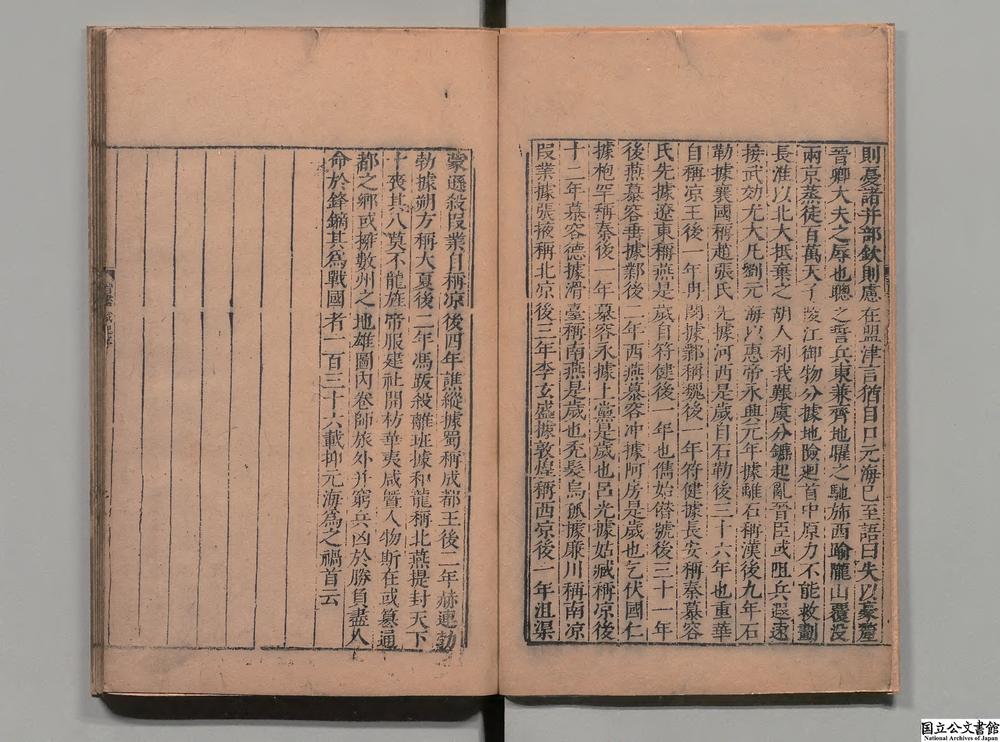 則憂諸并部欽則慮在盟津言猶自口元海已至語曰失以豪釐
晉卿大夫之辱也聰之誓兵東兼齊地曜之馳旆西踰隴山覆没
兩京蒸徒百萬天子陵江御物分據地險廻首中原力不能救劃
長淮以北大抵棄之胡人利我艱虞分鑣起亂晉臣或阻兵遐遠
接武效尤大凡劉元海以惠帝永興元年據離石稱漢後九年石
勒據襄國稱趙張氏先據河西是歲自石勒後三十六年也重華
自稱凉王後一年冉閔據鄴稱魏後一年符健據長安稱秦慕容
氏先據遼東稱燕是歲自符健後一年也儁始僭號後三十一年
後燕慕容垂據鄴後二年西燕慕容冲據阿房是歲也乞伏國仁
據枹罕稱秦後一年慕容永據上黨是歲也呂光據姑臧稱凉後
十二年慕容德據滑臺稱南燕是歲也禿髮烏孤據廉川稱南凉
段業據張掖稱北凉後三年李玄盛據敦煌稱西凉後一年沮渠
蒙遜殺段業自稱凉後四年譙縱據蜀稱成都王後二年赫連勃
勃據朔方稱大夏後二年馮跋殺離班據和龍稱北燕提封天下
十喪其八莫不龍旌帝服建社開祊華夷咸暨人物斯在或篡通
都之鄉或擁數州之地雄圖内卷師旅外并窮兵凶於勝負盡人
命於鋒鏑其爲戰國者一百三十六載抑元海爲之禍首云
国立公文書館
National Archives of Japan